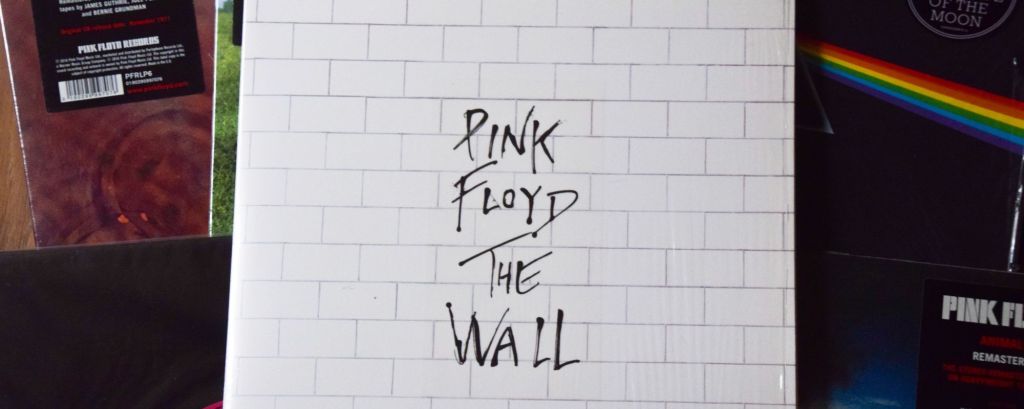 tapes by JAMES GUTHRIE, JOEL
and BERNIE GRUNDMAN
Original UK release date: November 1971
PINK FLOYD RECORDS
PFRLP6
www.pinkfloyd.com
PINK
FLOYD
THE
WALL
OF THE
MOON
PINK FL
ANIMAL
REMASTER